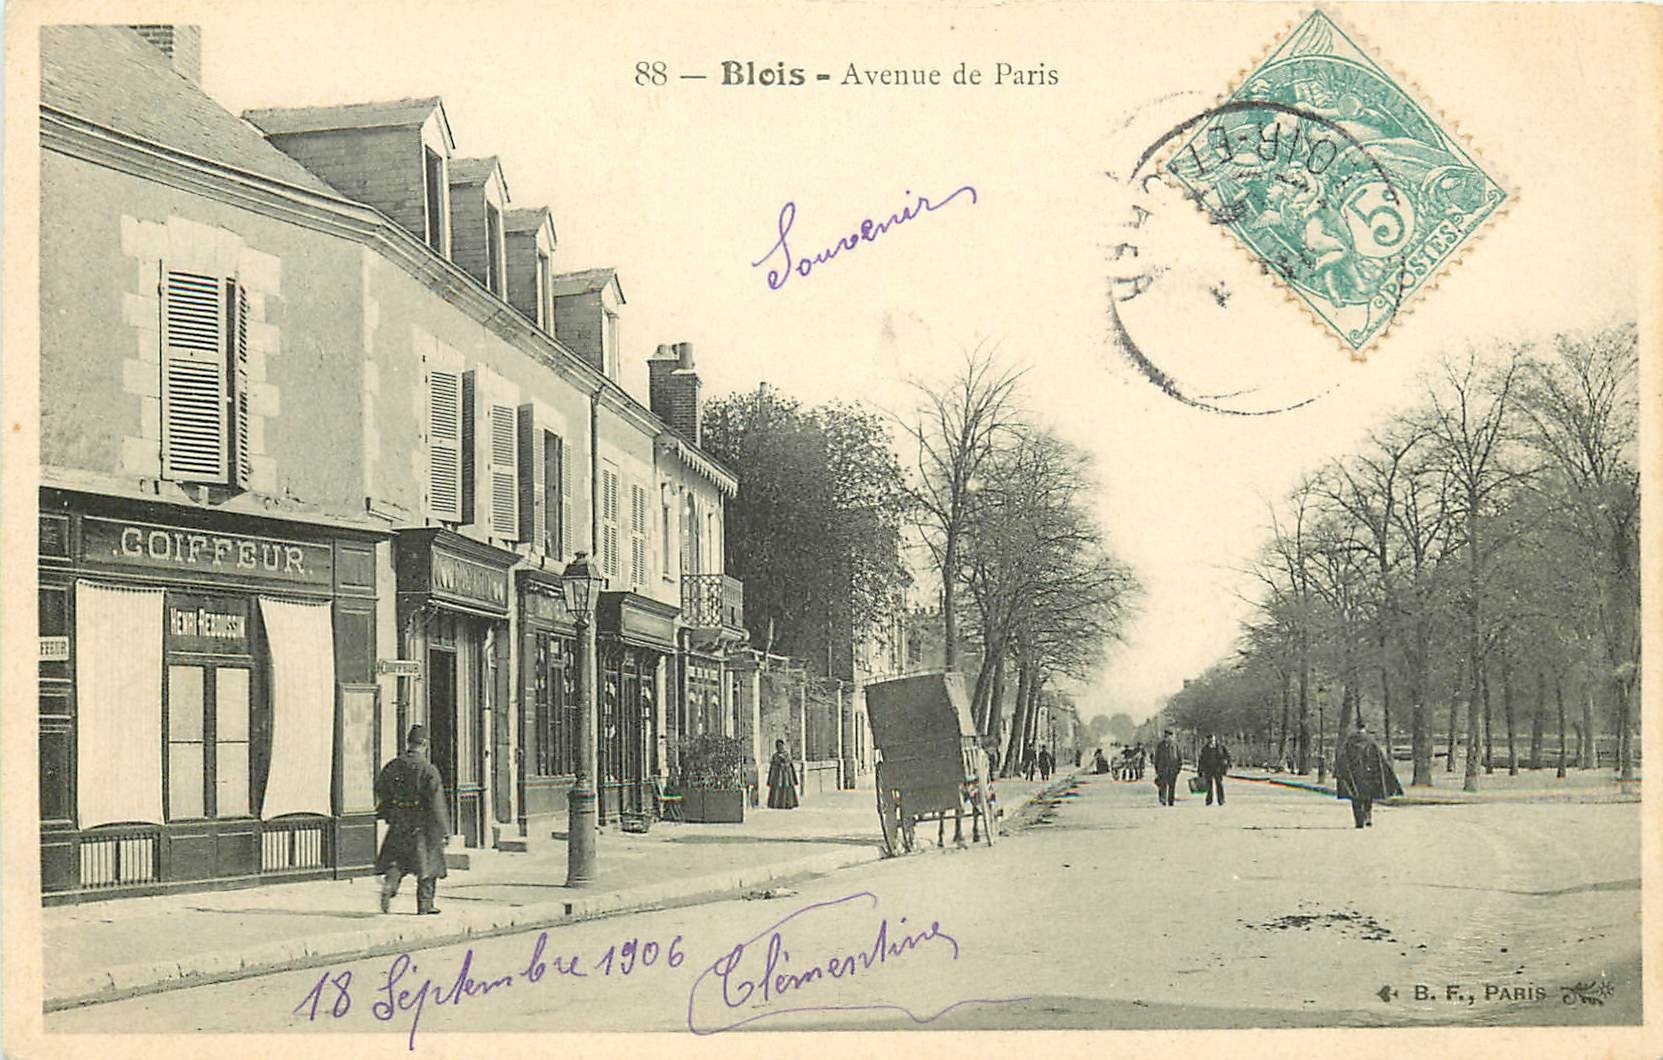 88 — Blois - Avenue de Paris
FRANÇAISE
5
POSTES
LOIR-ET-CHER
Souvenir
COIFFEUR.
HENRI REBOUSSIN
FFEUR
COIFFEUR
18 Séptembre 1906
Clémentine
B. F., PARIS